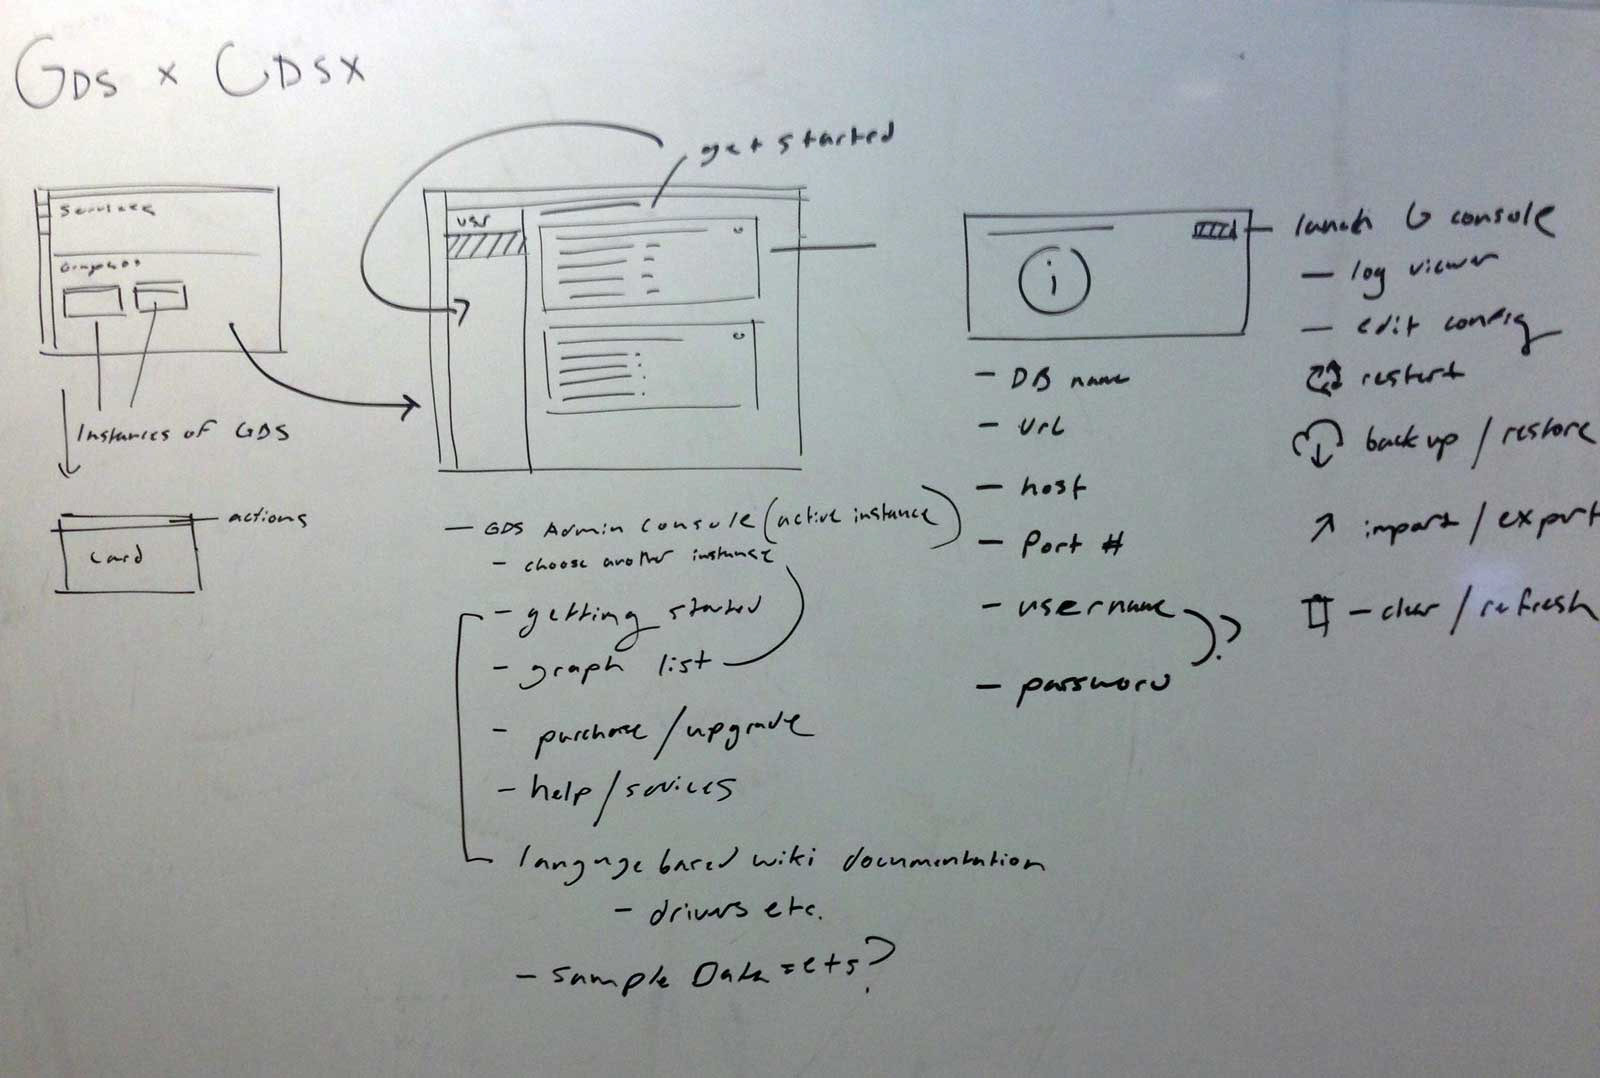 GDS x CDSX
get started
Services
Graphs
Instances of GDS
actions
card
USR
- GDS Admin Console (active instance)
- choose another instance
- getting started
- graph list
- purchase/upgrade
- help/services
language based wiki documentation
- drivers etc.
- Sample Data sets?
i
- DB name
- Url
- host
- Port #
- username
- password
?
launch G console
- log viewer
- edit config
restart
back up / restore
import / export
- clear / refresh